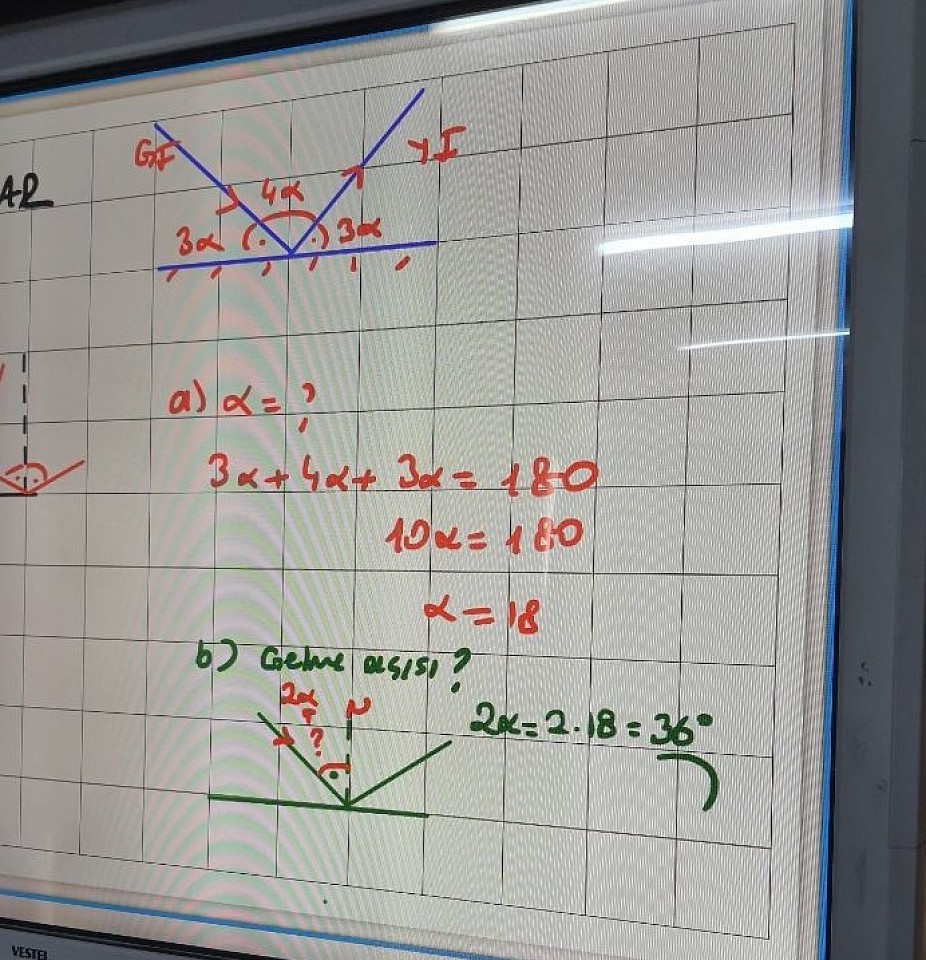 AR
GI
YI
4α
3α
3α
a) α = ?
3α + 4α + 3α = 180
10α = 180
α = 18
b) Gelme açısı?
2α
N
?
2α = 2.18 = 36°
VESTEL